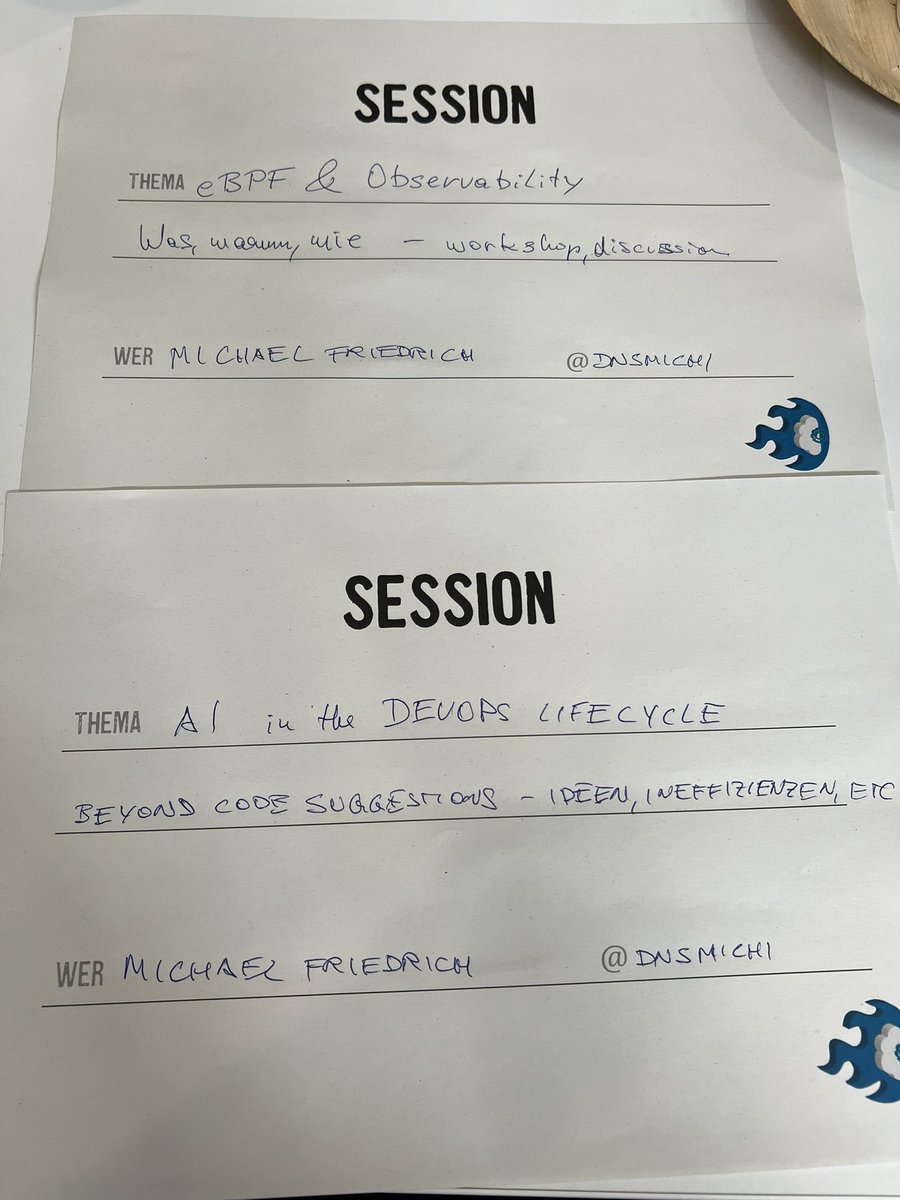 SESSION
THEMA eBPF & Observability
Was, warum, wie – workshop, discussion
WER MICHAEL FRIEDRICH @DNSMICHI
SESSION
THEMA AI in the DEVOPS LIFECYCLE
BEYOND CODE SUGGESTIONS – IDEEN, INEFFIZIENZEN, ETC
WER MICHAEL FRIEDRICH @DNSMICHI